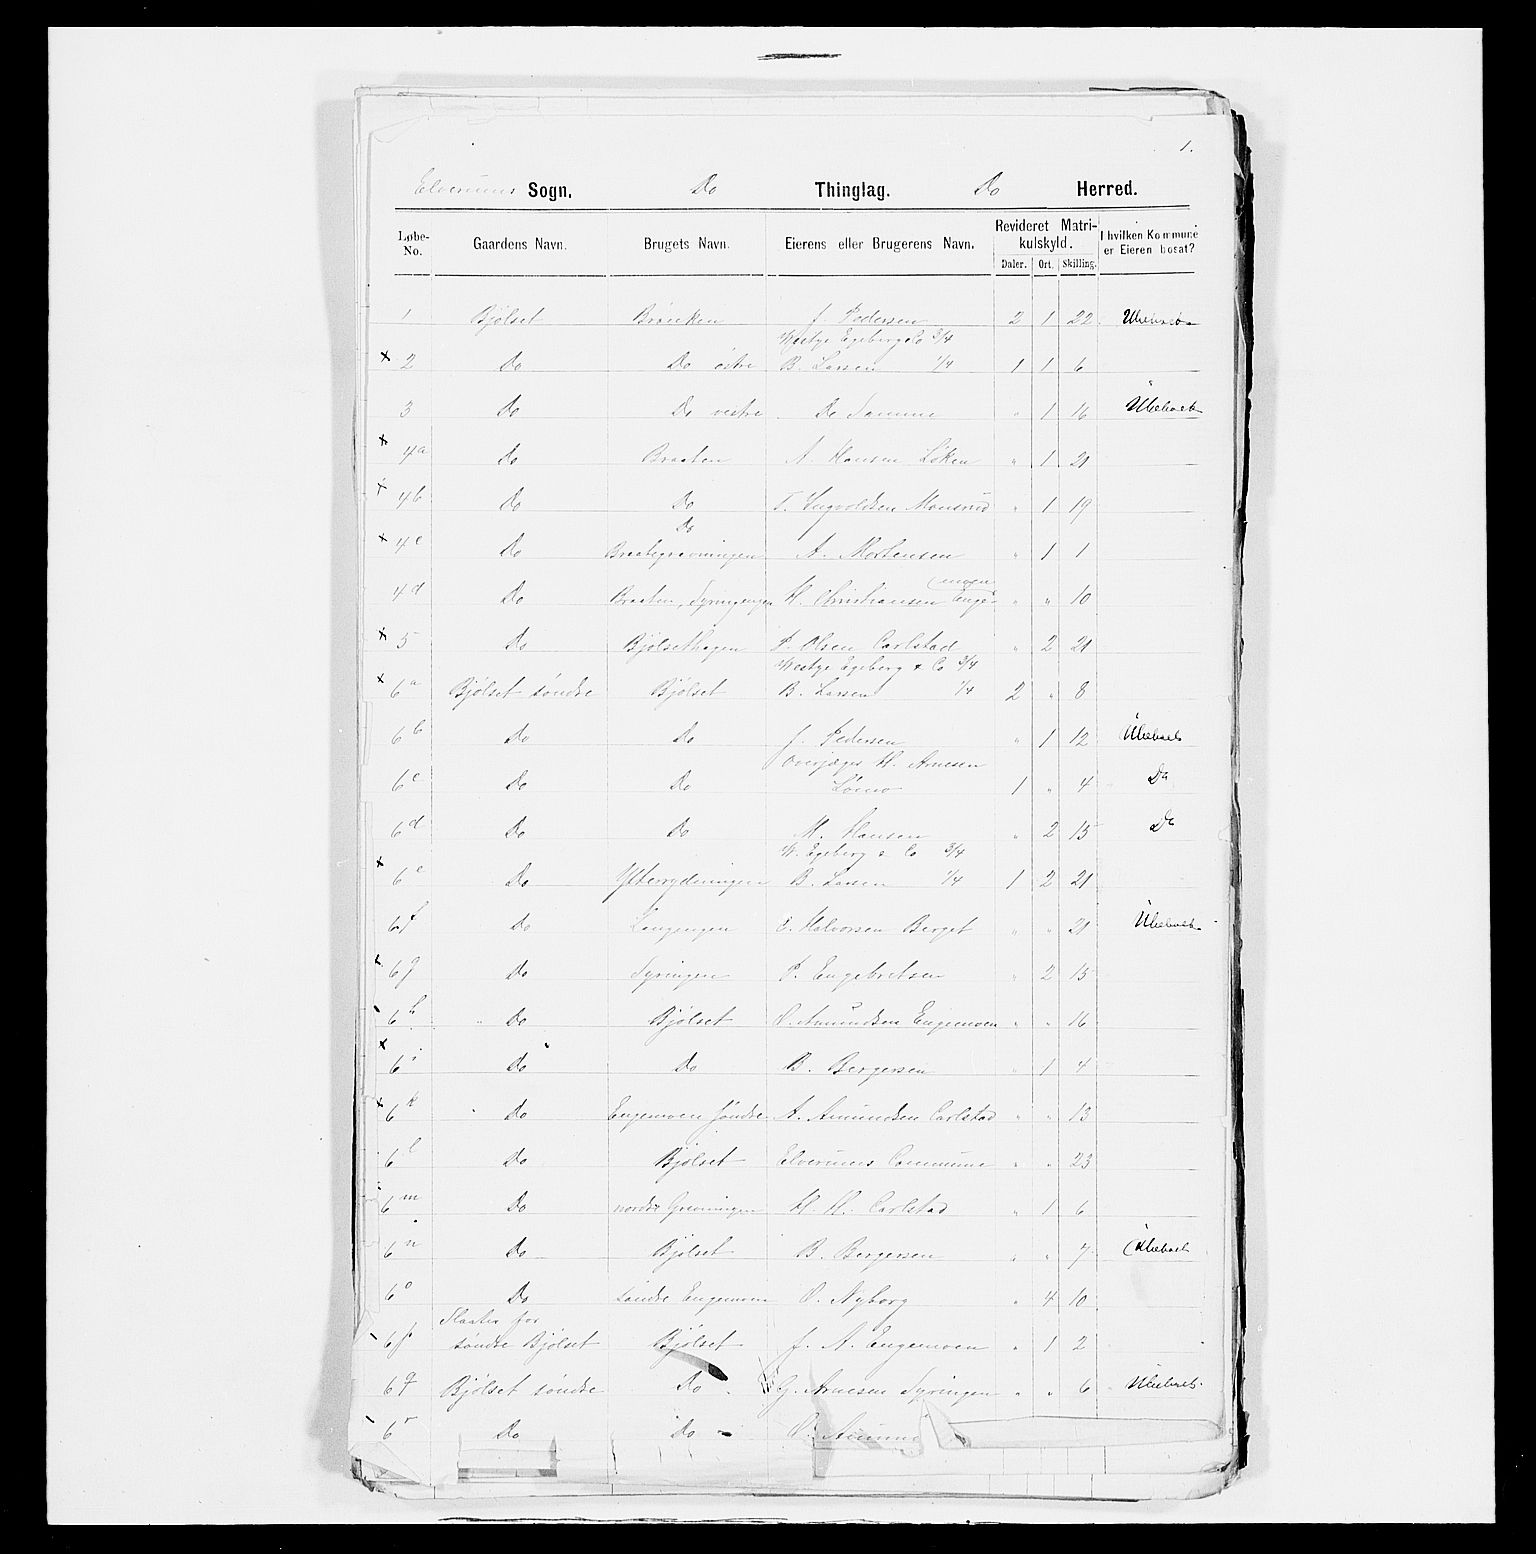 1.
Elverums Sogn. Do Thinglag. Do Herred.
Løbe-No. Gaardens Navn. Brugets Navn. Eierens eller Brugerens Navn. Revideret Matrikulskyld. I hvilken Kommune er Eieren bosat?
Daler. Ort. Skilling.
1 Bjölset Bråuken J. Pedersen 2 1 22 Ubeboet
Westye Egeberg & Co 3/4
x 2 Do Do östre B. Larsen 1/4 1 1 6
3 Do Do vestre Do Samme " 1 16 Ubeboet
x 4a Do Braaten A. Hansen Löken " 1 21
x 4b Do Do T. Ingvoldsen Monsrud " 1 19
Do
x 4c Do Braategravningen A. Mortensen " 1 1
4d Do Braaten, Syringengen H. Christiansen Enge-(moen " " 10
x 5 Do Bjölsethagen P. Olsen Carlstad " 2 21
Westye Egeberg & Co 3/4
x 6a Bjölset söndre Bjölset B. Larsen 1/4 2 " 8
6b Do Do J. Pedersen " 1 12 Ubeboet
Overjæger H. Arnesen
6c Do Do Lömo 1 " 4 Do
6d Do Do M. Hansen " 2 15 Do
W. Egeberg & Co 3/4
x 6e Do Ytterrydningen B. Larsen 1/4 1 2 21
6f Do Langengen E. Halvorsen Berget " " 21 Ubeboet
6g Do Syringen P. Engebretsen " 2 13
6h " Do Bjölset O. Amundsen Engemoen " " 16
x 6i Do Do B. Bergersen " 1 4
x 6k Do Engemoen söndre A. Amundsen Carlstad " " 13
6l Do Bjölset Elverums Commune " " 23
6m Do nordre Gravningen H. H. Carlstad " 1 6
6n Do Bjölset B. Bergersen " " 7 Ubeboet
6o Do söndre Engemoen O. Nyborg " 4 10
Slaatten for
6p söndre Bjölset Bjölset J. A. Engemoen " 1 2
6q Bjölset söndre Do G. Arnesen Syringen " " 6 Ubeboet
6r Do Do O.